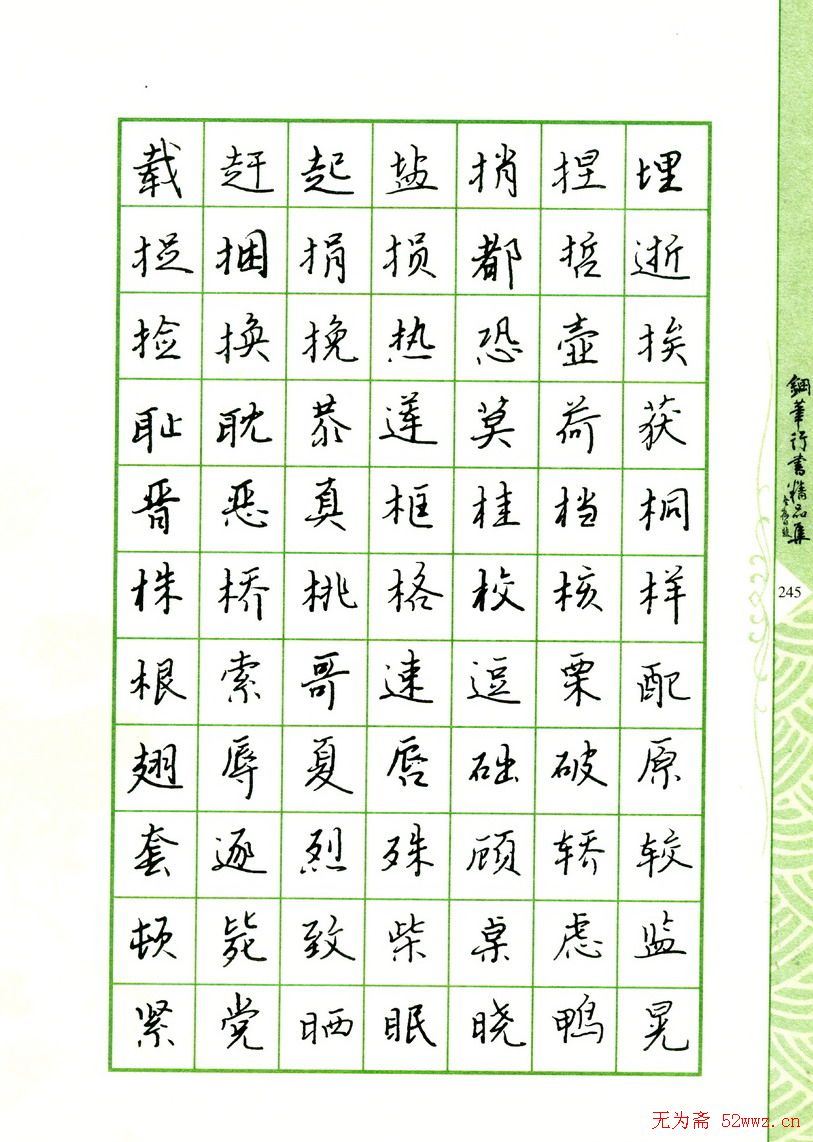 载赶起盐捎捏埋
捉捆捐损都哲逝
捡换挽热恐壶挨
耻耽恭莲莫荷获
晋恶真框桂档桐
株桥桃格校核样
根索哥速逗栗配
翅辱夏唇础破原
套逐烈殊顾轿较
顿毙致柴桌虑监
紧党晒眠晓鸭晃
钢笔行书精品集
245
无为斋 52wwz.cn